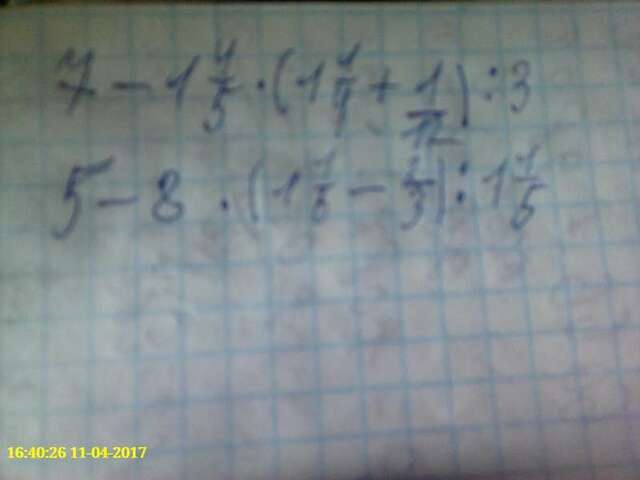 7 - 1 4/5 · (1 1/4 + 1/12) : 3
5 - 8 · (1 1/6 - 2/3) : 1 1/5
16:40:26 11-04-2017